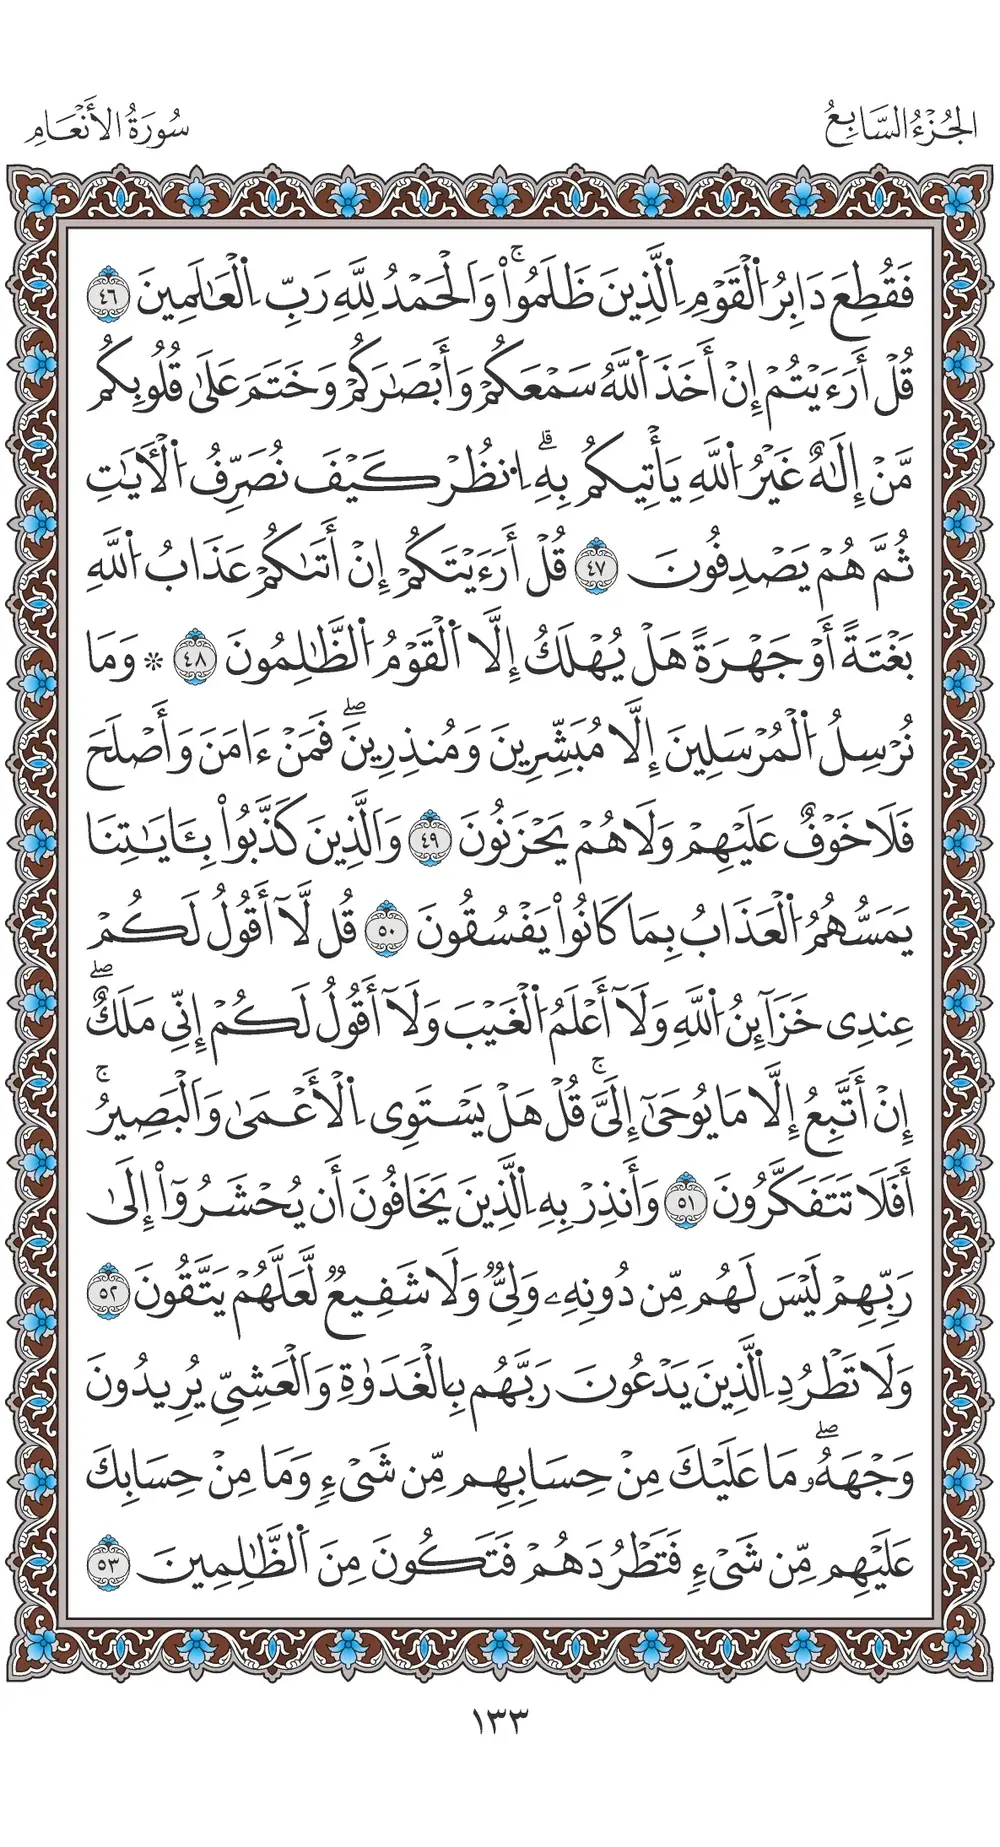 الجُزْءُ السَّابِعُ
سُورَةُ الأَنْعَامِ
فَقُطِعَ دَابِرُ اُ۬لْقَوْمِ اِ۬لَّذِينَ ظَلَمُواْۚ وَالْحَمْدُ لِلَّهِ رَبِّ اِ۬لْعَٰلَمِينَ ٤٦
قُلْ أَرَءَيْتُمْ إِنْ أَخَذَ اَ۬للَّهُ سَمْعَكُمْ وَأَبْصَٰرَكُمْ وَخَتَمَ عَلَىٰ قُلُوبِكُم
مَّنْ إِلَٰهٌ غَيْرُ اُ۬للَّهِ يَأْتِيكُم بِهِۗ اِ۟نظُرْ كَيْفَ نُصَرِّفُ اُ۬لْأٓيَٰتِ
ثُمَّ هُمْ يَصْدِفُونَ ٤٧ قُلْ أَرَءَيْتَكُمْ إِنْ أَتَىٰكُمْ عَذَابُ اُ۬للَّهِ
بَغْتَةً أَوْ جَهْرَةً هَلْ يُهْلَكُ إِلَّا اَ۬لْقَوْمُ اُ۬لظَّٰلِمُونَ ٤٨ * وَمَا
نُرْسِلُ اُ۬لْمُرْسَلِينَ إِلَّا مُبَشِّرِينَ وَمُنذِرِينَۖ فَمَنْ ءَامَنَ وَأَصْلَحَ
فَلَا خَوْفٌ عَلَيْهِمْ وَلَا هُمْ يَحْزَنُونَ ٤٩ وَالَّذِينَ كَذَّبُواْ بِـَٔايَٰتِنَا
يَمَسُّهُمُ اُ۬لْعَذَابُ بِمَا كَانُواْ يَفْسُقُونَ ٥٠ قُل لَّآ أَقُولُ لَكُمْ
عِندِي خَزَآئِنُ اُ۬للَّهِ وَلَآ أَعْلَمُ اُ۬لْغَيْبَ وَلَآ أَقُولُ لَكُمْ إِنِّي مَلَكٌۖ
إِنْ أَتَّبِعُ إِلَّا مَا يُوحَىٰٓ إِلَيَّۚ قُلْ هَلْ يَسْتَوِي اِ۬لْأَعْمَىٰ وَالْبَصِيرُۚ
أَفَلَا تَتَفَكَّرُونَ ٥١ وَأَنذِرْ بِهِ اِ۬لَّذِينَ يَخَافُونَ أَن يُحْشَرُوٓاْ إِلَىٰ
رَبِّهِمْ لَيْسَ لَهُم مِّن دُونِهِۦ وَلِيٌّ وَلَا شَفِيعٌ لَّعَلَّهُمْ يَتَّقُونَ ٥٢
وَلَا تَطْرُدِ اِ۬لَّذِينَ يَدْعُونَ رَبَّهُم بِالْغَدَوٰةِ وَالْعَشِيِّ يُرِيدُونَ
وَجْهَهُۥۖ مَا عَلَيْكَ مِنْ حِسَابِهِم مِّن شَيْءٍ وَمَا مِنْ حِسَابِكَ
عَلَيْهِم مِّن شَيْءٍ فَتَطْرُدَهُمْ فَتَكُونَ مِنَ اَ۬لظَّٰلِمِينَ ٥٣
١٣٣